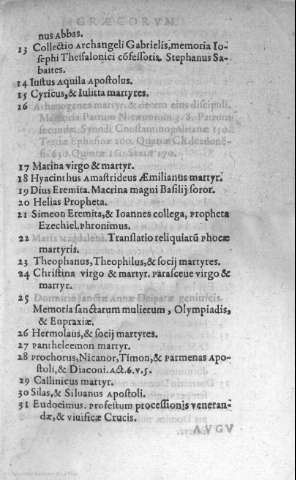 GRÆCORVM.
nus Abbas.
13 Collectio Archangeli Gabrielis, memoria Io-
sephi Thessalonici cõfessoris. Stephanus Sa-
baites.
14 Iustus Aquila Apostolus.
15 Cyricus, & Iulitta martyres.
16 Athenogenes martyr. & decem eius discipuli.
Memoria Patrum Nicænorum 318. Patrum
secundæ Synodi Constantinopolitanæ 150.
Tertiæ Ephesinæ 200. Quartæ Chalcedonen-
sis 630. Quintæ 165. Sextæ 170.
17 Marina virgo & martyr.
18 Hyacinthus Amastrideus Æmilianus martyr.
19 Dius Eremita. Macrina magni Basilij soror.
20 Helias Propheta.
21 Simeon Eremita, & Ioannes collega, Propheta
Ezechiel. phronimus.
22 Maria Magdalena. Translatio reliquiarũ phocæ
martyris.
23 Theophanus, Theophilus, & socij martyres.
24 Christina virgo & martyr. parasceue virgo &
martyr.
25 Dormitio sanctæ Annæ Deiparæ genitricis.
Memoria sanctarum mulierum, Olympiadis,
& Eupraxiæ.
26 Hermolaus, & socij martyres.
27 panteleemon martyr.
28 prochorus, Nicanor, Timon, & parmenas Apo-
stoli, & Diaconi. Act. 6. v. 5.
29 Callinicus martyr.
30 Silas, & Siluanus Apostoli.
31 Eudocimus. Profestum processionis veneran-
dæ, & viuificæ Crucis.
AVGV